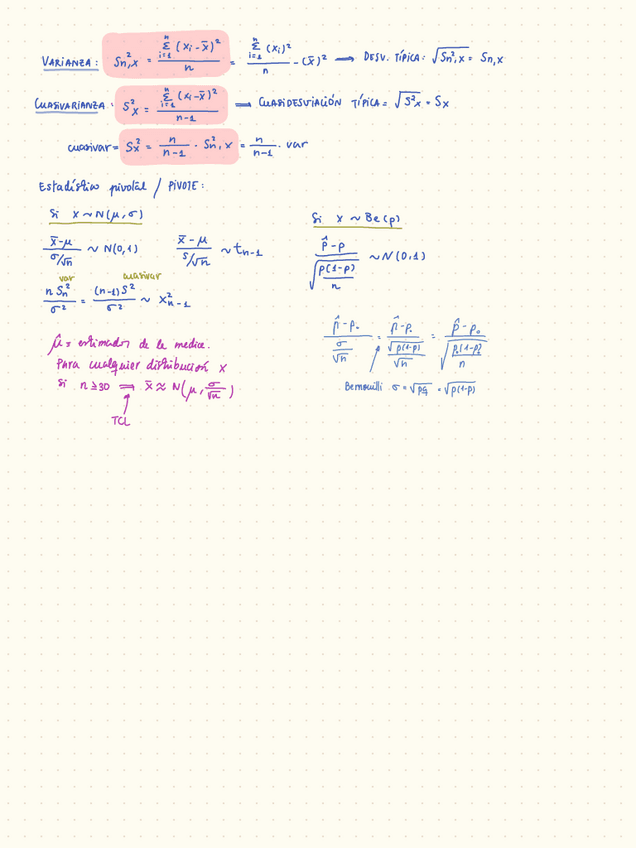 VARIANZA: S²n,x = Σ(i=1..n) (xi - x̄)² / n = Σ(i=1..n) (xi)² / n - (x̄)² → DESV. TÍPICA: √S²n,x = Sn,x
CUASIVARIANZA: S²x = Σ(i=1..n) (xi - x̄)² / n-1 ⟹ CUASIDESVIACIÓN TÍPICA = √S²x = Sx
cuasivar = Sx² = n / n-1 · Sn²,x = n / n-1 · var
Estadístico pivotal / PIVOTE:
Si X ~ N(μ, σ)
x̄ - μ / σ/√n ~ N(0,1)   x̄ - μ / s/√n ~ t n-1
var   cuasivar
n Sn² / σ² = (n-1) S² / σ² ~ χ² n-1
Si X ~ Be(p)
p̂ - p / √(p(1-p) / n) ~ N(0,1)
μ̂ = estimador de la media.
Para cualquier distribución X
Si n ≥ 30 ⟹ x̄ ≈ N(μ, σ/√n)
TCL
p̂ - p₀ / σ/√n = p̂ - p₀ / √p(1-p)/√n = p̂ - p₀ / √(p₀(1-p₀) / n)
Bernouilli σ = √pq = √p(1-p)